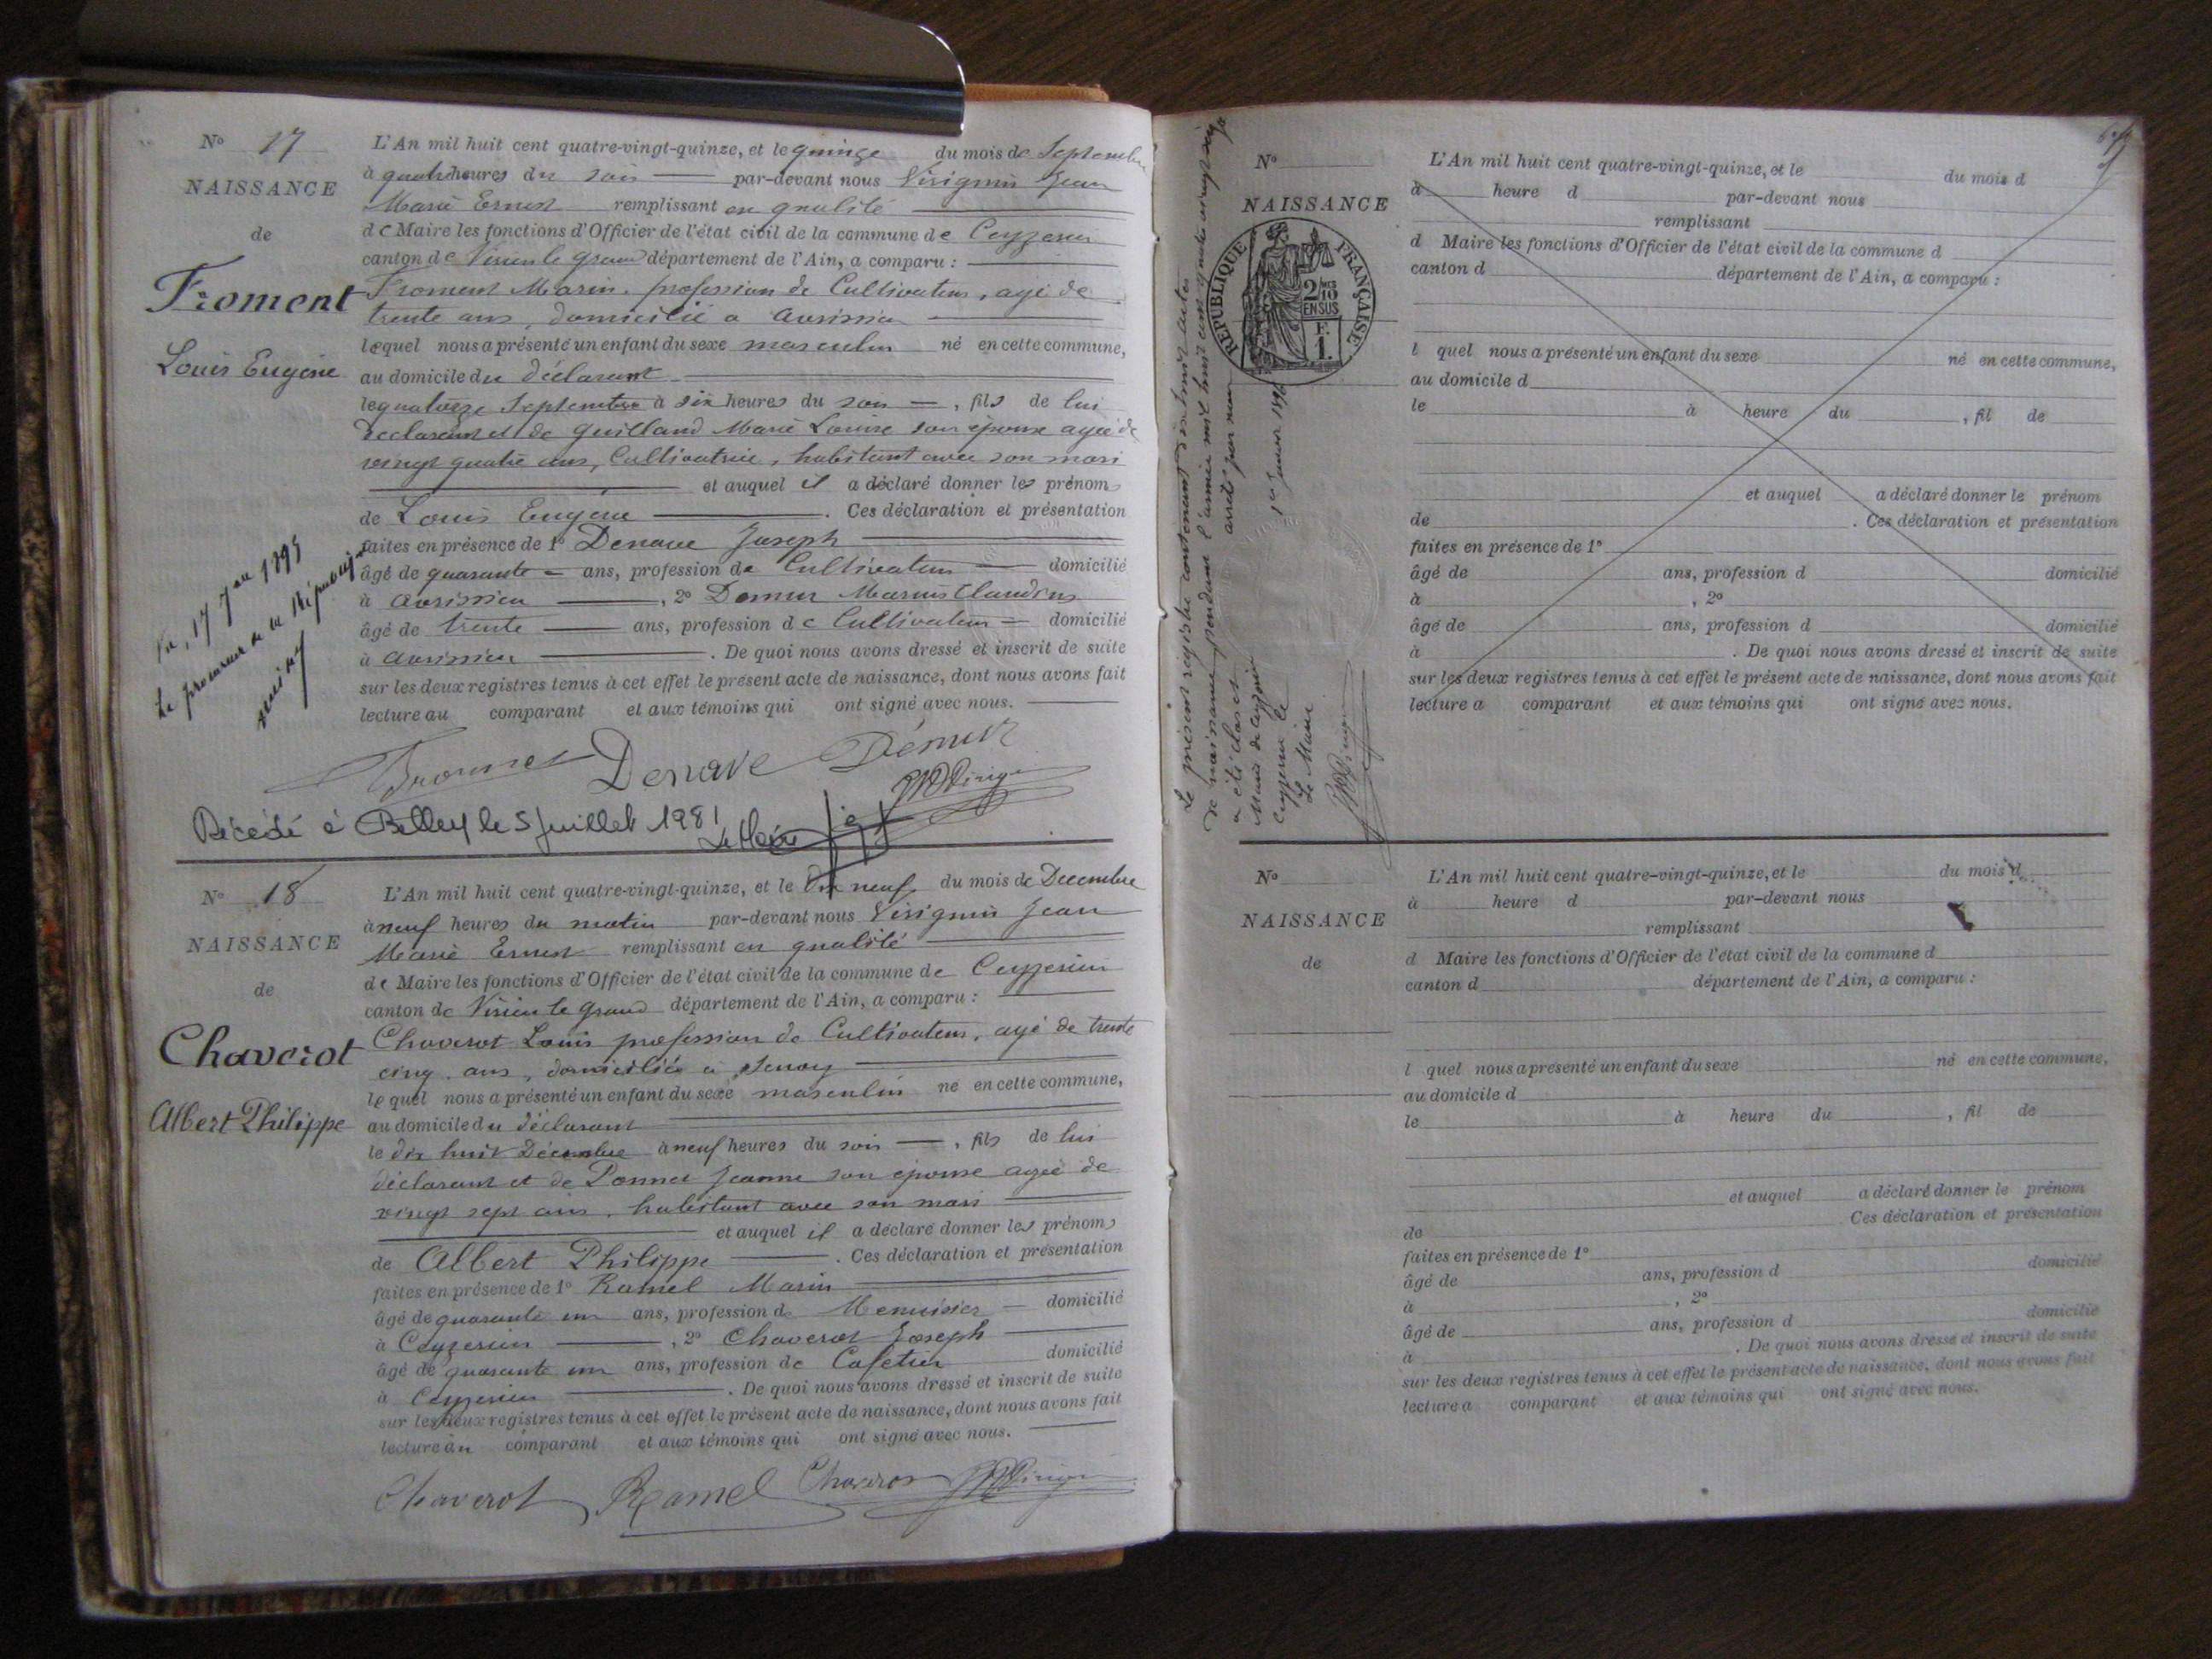 N° 17
NAISSANCE
de
Froment
Louis Eugène
L'An mil huit cent quatre-vingt-quinze, et le quinze du mois de Septembre
à quatre heures du soir par-devant nous Virignin Jean
Marie Ernest remplissant en qualité
de Maire les fonctions d'Officier de l'état civil de la commune de Ceyzerieu
canton de Virieu le grand département de l'Ain, a comparu :
Froment Marin, profession de Cultivateur, agé de
trente ans, domicilié a Avrissieu
lequel nous a présenté un enfant du sexe masculin né en cette commune,
au domicile du déclarant
le quatorze Septembre à six heures du soir, fils de lui
declarant et de Guilland Marie Louise son épouse agée de
vingt quatre ans, Cultivatrice, habitant avec son mari
et auquel il a déclaré donner les prénoms
de Louis Eugène. Ces déclaration et présentation
faites en présence de 1° Denave Joseph
âgé de quarante ans, profession de Cultivateur domicilié
à Avrissieu, 2° Demur Marius Claudius
âgé de trente ans, profession de Cultivateur domicilié
à Avrissieu. De quoi nous avons dressé et inscrit de suite
sur les deux registres tenus à cet effet le présent acte de naissance, dont nous avons fait
lecture au comparant et aux témoins qui ont signé avec nous.
Vu, 17 1895
Le procureur de la République
Froment Denave Démur
Décédé à Belley le 5 juillet 1981
Le Maire
N° 18
NAISSANCE
de
Chaverot
Albert Philippe
L'An mil huit cent quatre-vingt-quinze, et le dix neuf du mois de Decembre
à neuf heures du matin par-devant nous Virignin Jean
Marie Ernest remplissant en qualité
de Maire les fonctions d'Officier de l'état civil de la commune de Ceyzerieu
canton de Virieu le grand département de l'Ain, a comparu :
Chaverot Louis profession de Cultivateur, agé de trente
cinq ans, domiciliée à
lequel nous a présenté un enfant du sexe masculin né en cette commune,
au domicile du déclarant
le dix huit Décembre à neuf heures du soir, fils de lui
déclarant et de Ponnet Jeanne son épouse agée de
vingt sept ans, habitant avec son mari
et auquel il a déclaré donner les prénoms
de Albert Philippe. Ces déclaration et présentation
faites en présence de 1° Ramel Marin
âgé de quarante un ans, profession de Menuisier domicilié
à Ceyzerieu, 2° Chaverot Joseph
âgé de quarante un ans, profession de Cafetier domicilié
à Ceyzerieu. De quoi nous avons dressé et inscrit de suite
sur les deux registres tenus à cet effet le présent acte de naissance, dont nous avons fait
lecture au comparant et aux témoins qui ont signé avec nous.
Chaverot Ramel Chaverot
Le présent registre contenant dix huit actes
de naissance pendant l'année mil huit cent quatre vingt quinze
a été clos et arrêté par nous
Maire de Ceyzerieu
Ceyzerieu le 1er Janvier 1896
Le Maire
RÉPUBLIQUE FRANÇAISE
2/10 EN SUS
F. 1.
N°
NAISSANCE
L'An mil huit cent quatre-vingt-quinze, et le du mois d
à heure d par-devant nous
remplissant
d Maire les fonctions d'Officier de l'état civil de la commune d
canton d département de l'Ain, a comparu :
l quel nous a présenté un enfant du sexe né en cette commune,
au domicile d
le à heure du , fil de
et auquel a déclaré donner le prénom
de . Ces déclaration et présentation
faites en présence de 1°
âgé de ans, profession d domicilié
à , 2°
âgé de ans, profession d domicilié
à . De quoi nous avons dressé et inscrit de suite
sur les deux registres tenus à cet effet le présent acte de naissance, dont nous avons fait
lecture a comparant et aux témoins qui ont signé avec nous.
N°
NAISSANCE
de
L'An mil huit cent quatre-vingt-quinze, et le du mois d
à heure d par-devant nous
remplissant
d Maire les fonctions d'Officier de l'état civil de la commune d
canton d département de l'Ain, a comparu :
l quel nous a présenté un enfant du sexe né en cette commune,
au domicile d
le à heure du , fil de
et auquel a déclaré donner le prénom
de Ces déclaration et présentation
faites en présence de 1°
âgé de ans, profession d domicilié
à , 2°
âgé de ans, profession d domicilié
à . De quoi nous avons dressé et inscrit de suite
sur les deux registres tenus à cet effet le présent acte de naissance, dont nous avons fait
lecture a comparant et aux témoins qui ont signé avec nous.